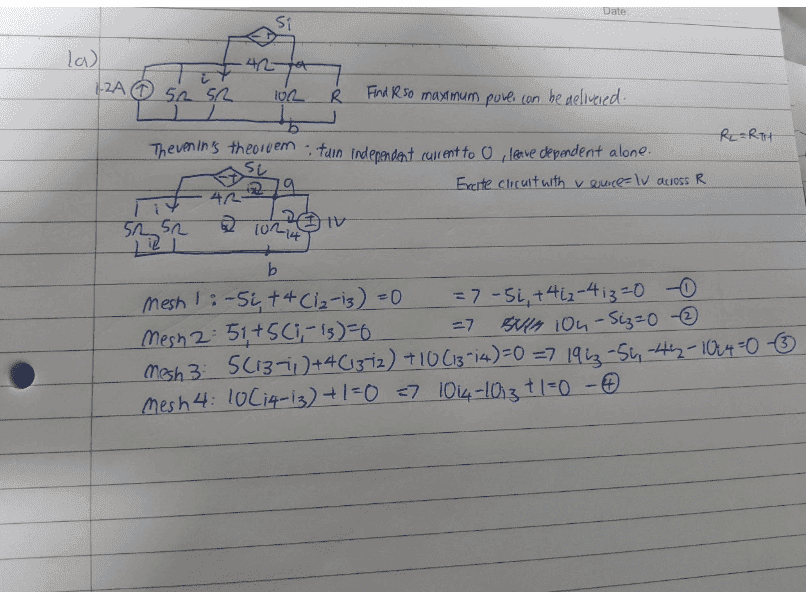 Date.
1a)
5i
4Ω a
1.2A i
5Ω 5Ω 10Ω R Find R so maximum power can be delivered.
b
RL=RTH
Thevenin's theorem : turn independent current to 0 , leave dependent alone.
5i
Excite circuit with v source=1V across R
4Ω i2 a
i
5Ω 5Ω 10Ω i4 1V
b
Mesh 1 : -5i, +4(i2-i3) =0 => -5i, +4i2-4i3=0 -①
Mesh 2: 5i, +5(i,-i3)=0 => 10i, -5i3=0 -②
Mesh 3: 5(i3-i,)+4(i3-i2) +10(i3-i4)=0 => 19i3 -5i, -4i2 -10i4=0 -③
Mesh 4: 10(i4-i3) +1=0 => 10i4-10i3 +1=0 -④